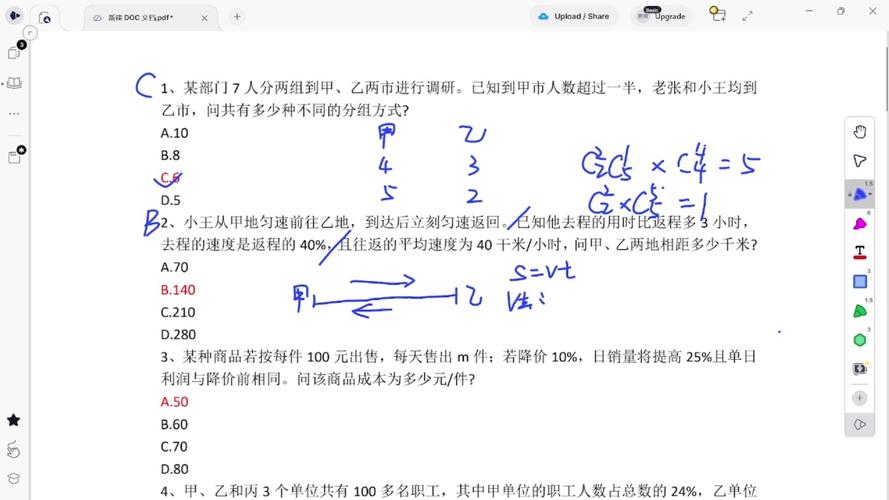 新建 DOC 文档.pdf*
Upload / Share
Basic
Upgrade
C 1、某部门 7 人分两组到甲、乙两市进行调研。已知到甲市人数超过一半，老张和小王均到
乙市，问共有多少种不同的分组方式？
A.10
B.8
C.6
D.5
甲 乙
4 3
5 2
C²₂C¹₅ × C⁴₄ = 5
C²₂×C⁵₅ = 1
B 2、小王从甲地匀速前往乙地，到达后立刻匀速返回。已知他去程的用时比返程多 3 小时，
去程的速度是返程的 40%，且往返的平均速度为 40 千米/小时，问甲、乙两地相距多少千米？
A.70
B.140
C.210
D.280
甲 乙
S=vt
V去:
3、某种商品若按每件 100 元出售，每天售出 m 件；若降价 10%，日销量将提高 25%且单日
利润与降价前相同。问该商品成本为多少元/件？
A.50
B.60
C.70
D.80
4、甲、乙和丙 3 个单位共有 100 多名职工，其中甲单位的职工人数占总数的 24%，乙单位